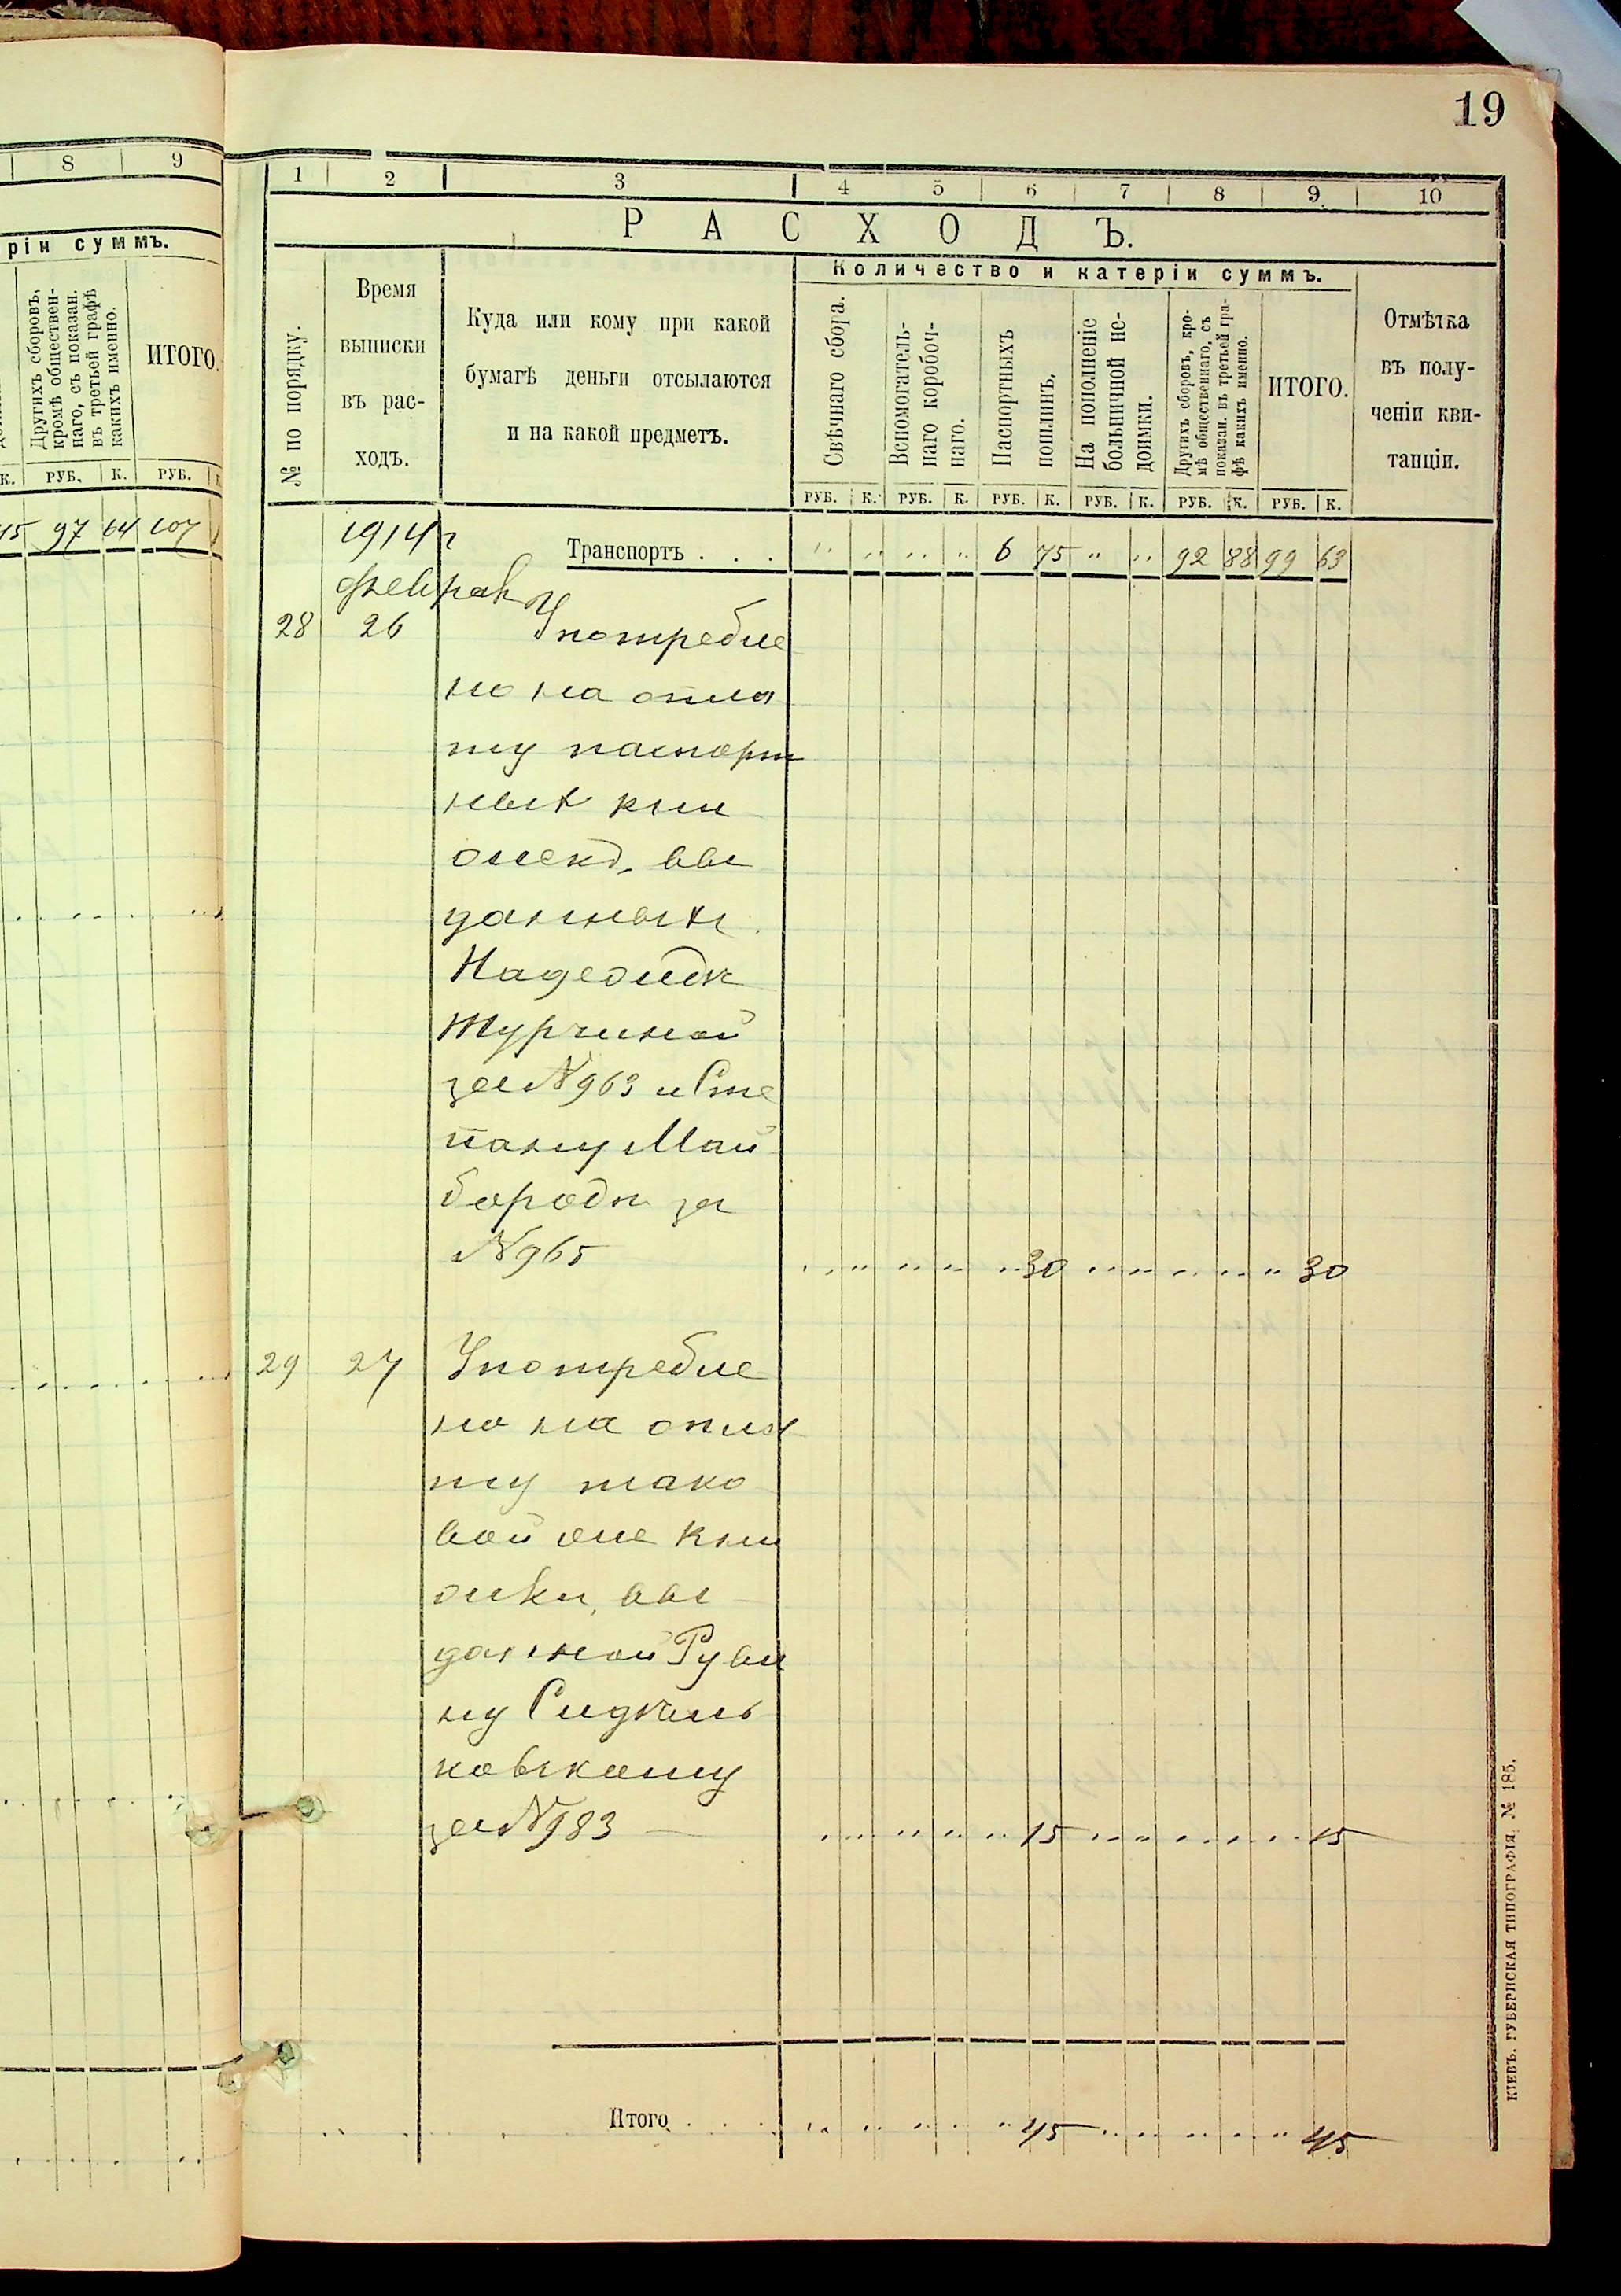 19
8 9
ріи суммъ.
Другихъ сборовъ,
кромѣ обществен-
наго, съ показан.
въ третьей графѣ
какихъ именно.
ИТОГО.
К. РУБ. К. РУБ.
45 97 64 107
1 2 3 4 5 6 7 8 9 10
РАСХОДЪ.
Количество и катеріи суммъ.
№ по порядку.
Время
выписки
въ рас-
ходъ.
Куда или кому при какой
бумагѣ деньги отсылаются
и на какой предметъ.
Свѣчнаго сбора.
Вспомогатель-
наго коробоч-
наго.
Паспортныхъ
пошлинъ.
На пополненіе
больничной не-
доимки.
Другихъ сборовъ, кро-
мѣ общественнаго, съ
показан. въ третьей гра-
фѣ какихъ именно.
ИТОГО.
Отмѣтка
въ полу-
ченіи кви-
танціи.
РУБ. К. РУБ. К. РУБ. К. РУБ. К. РУБ. К. РУБ. К.
1914 г
Транспортъ . . . " " " " 6 75 " " 92 88 99 63
Феврал
28 26 Употребле
но на опла
ту паспорт
ныхъ кни
жекъ, вы
данныхъ
Надеждѣ
Турчиной
за N 963 и Сте
пану Май
бородѣ за
N 965 30 30
29 27 Употребле
но на опла
ту тако
вой же кни
жки, вы
данной Руви
ну
новскому
за N 983 15 15
Итого . . . 45 45
КІЕВЪ. ГУБЕРНСКАЯ ТИПОГРАФІЯ. № 185.